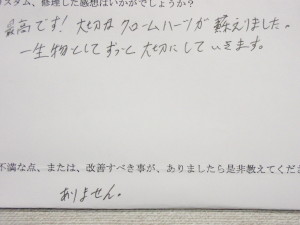 スタム、修理した感想はいかがでしょうか?
最高です!大切なクロームハーツが蘇えりました。
一生物としてずっと大切にしていきます。
不満な点、または、改善すべき事が、ありましたら是非教えてくださ
ありません。